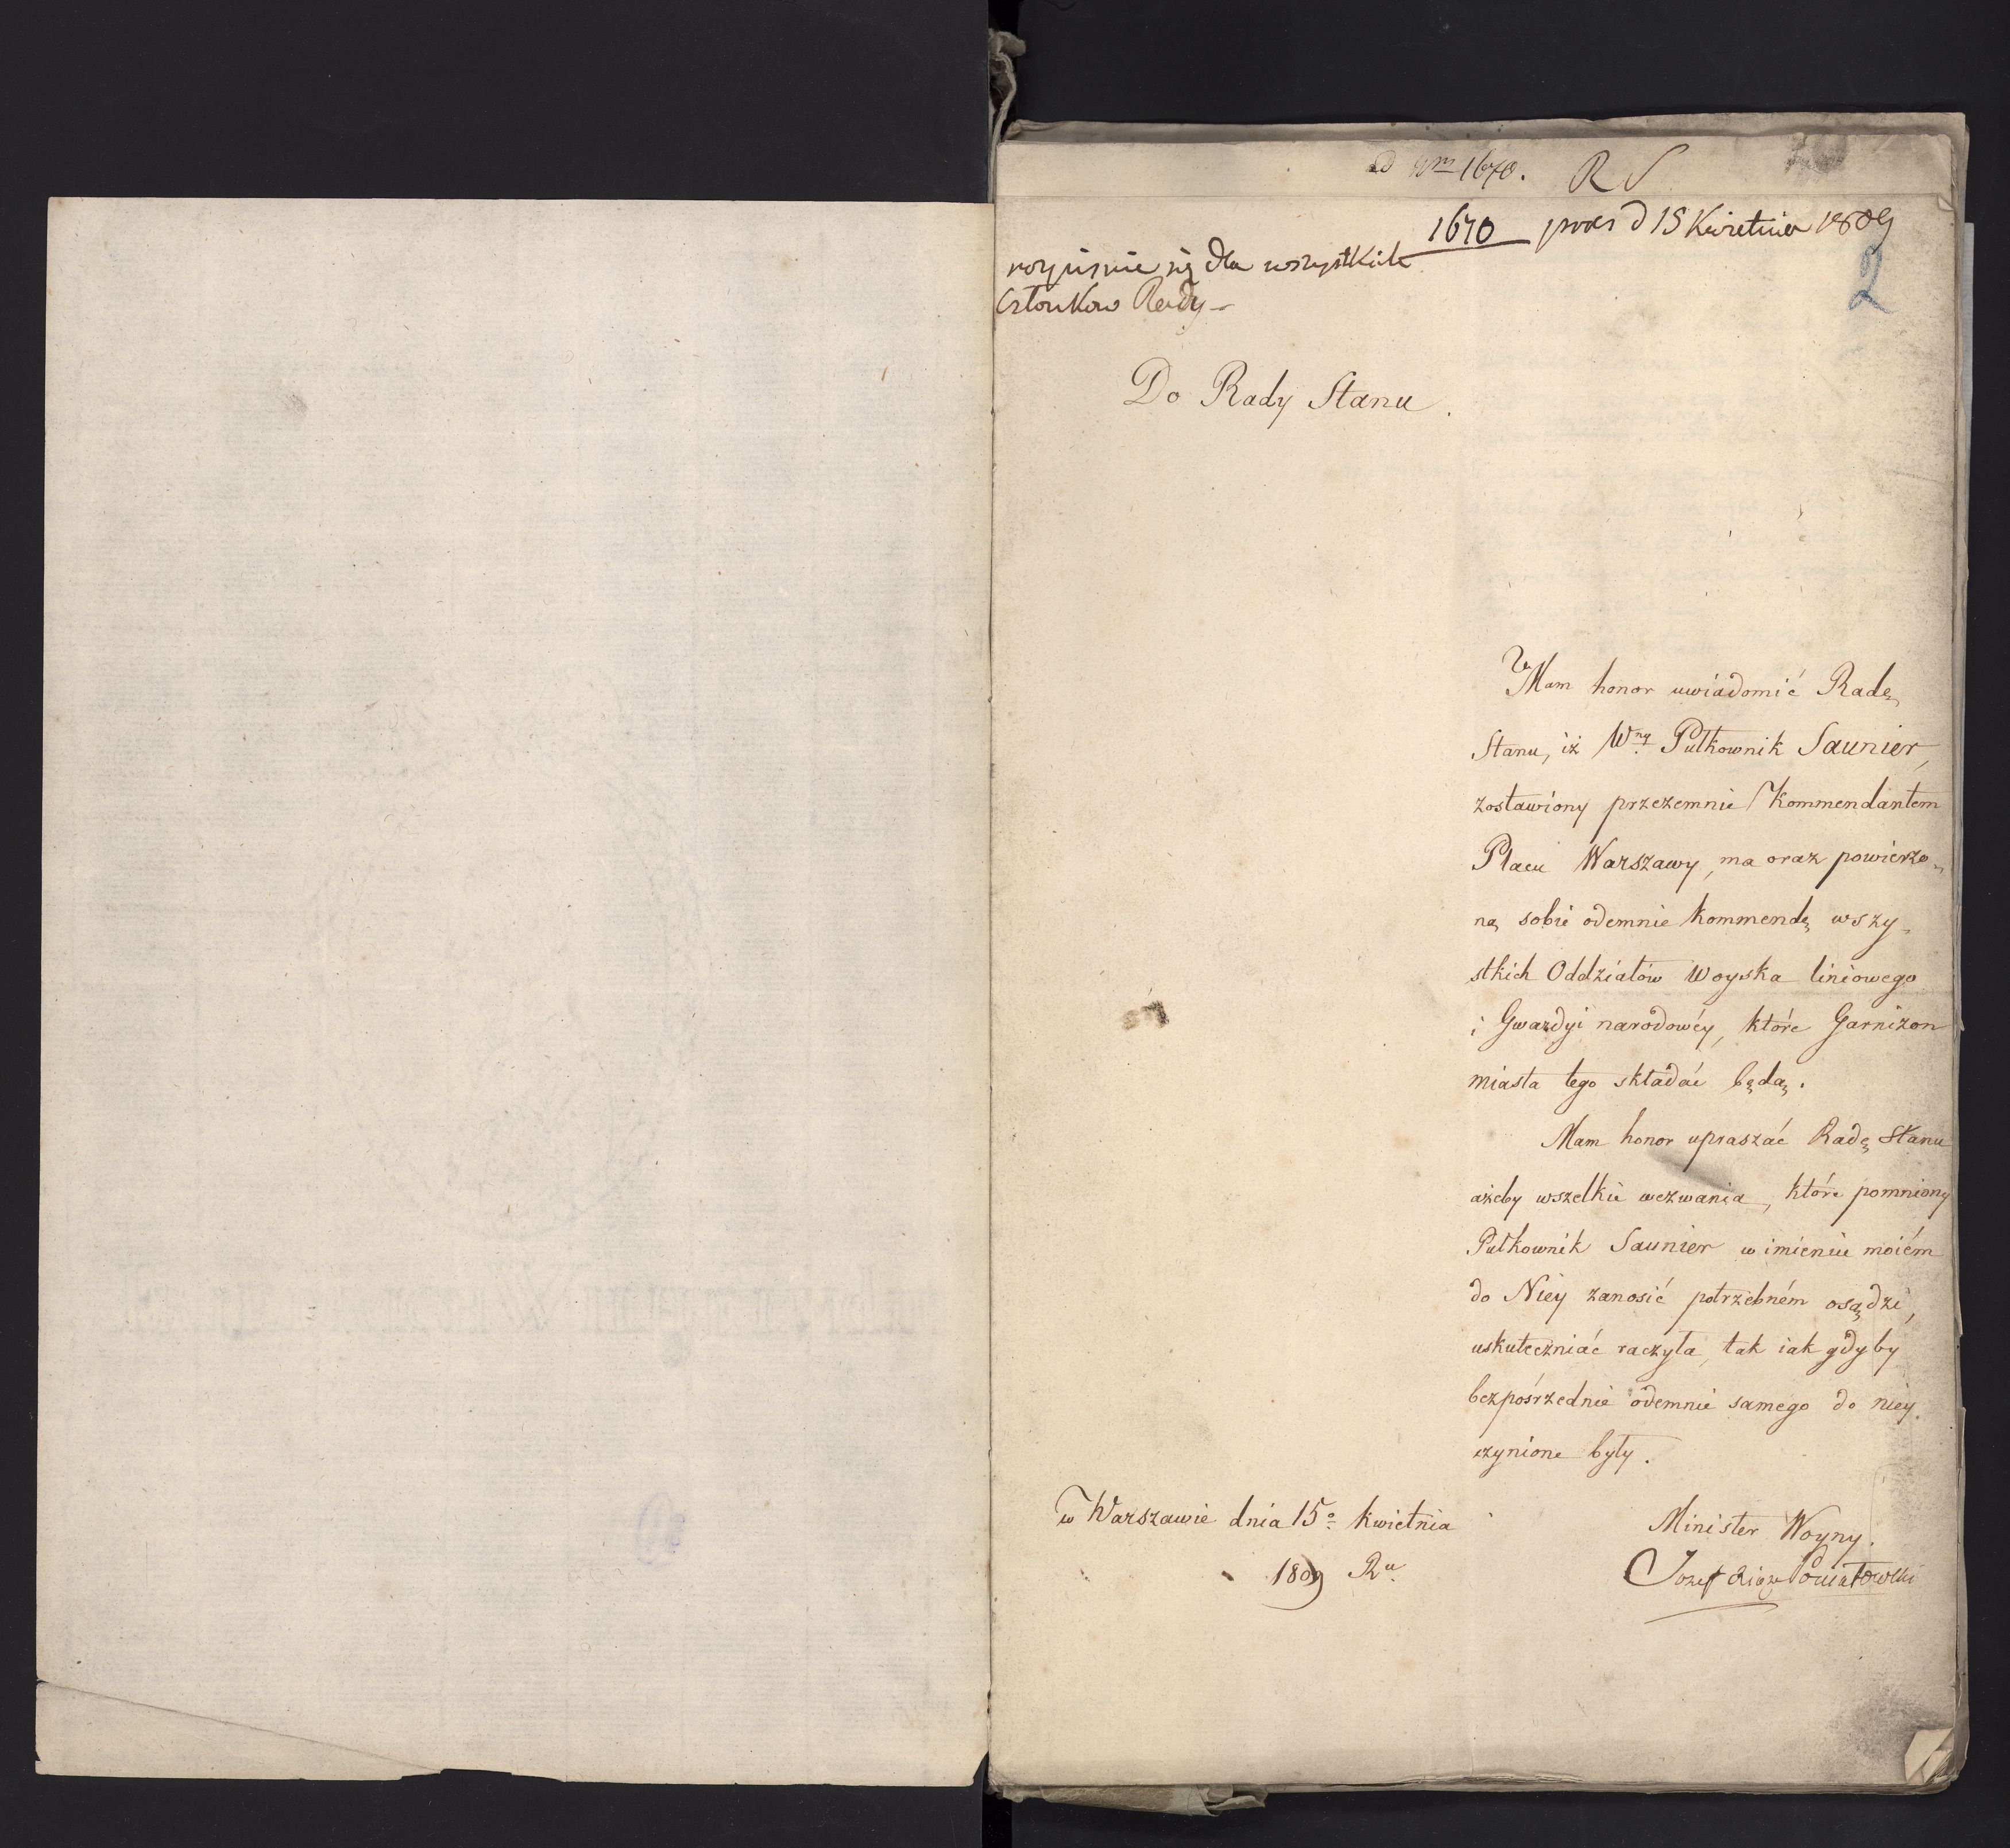 ad Nrm 1670. R S
1670 praes d 15 Kwietnia 1809
2
rozpisnie się dla wszystkich
Członkow Rady –
Do Rady Stanu.
Mam honor uwiadomić Radę
Stanu, iż Wny Pułkownik Saunier,
zostawiony przezemnie Kommendantem
Placu Warszawy, ma oraz powierzo-
ną sobie odemnie kommendę wszy-
stkich Oddziałów Woyska liniowego
i Gwardyi narodowéy, które Garnizon
miasta tego składać będą.
Mam honor upraszać Radę Stanu
ażeby wszelkie wezwania, które pomniony
Pułkownik Saunier w imieniu moiém
do Niey zanosić potrzebném osądzi,
uskuteczniać raczyła, tak iak gdyby
bezpośrzednie odemnie samego do niey
czynione były.
w Warszawie dnia 15o kwietnia
1809 Ru
Minister Woyny.
Jozef Xiąże Poniatowski